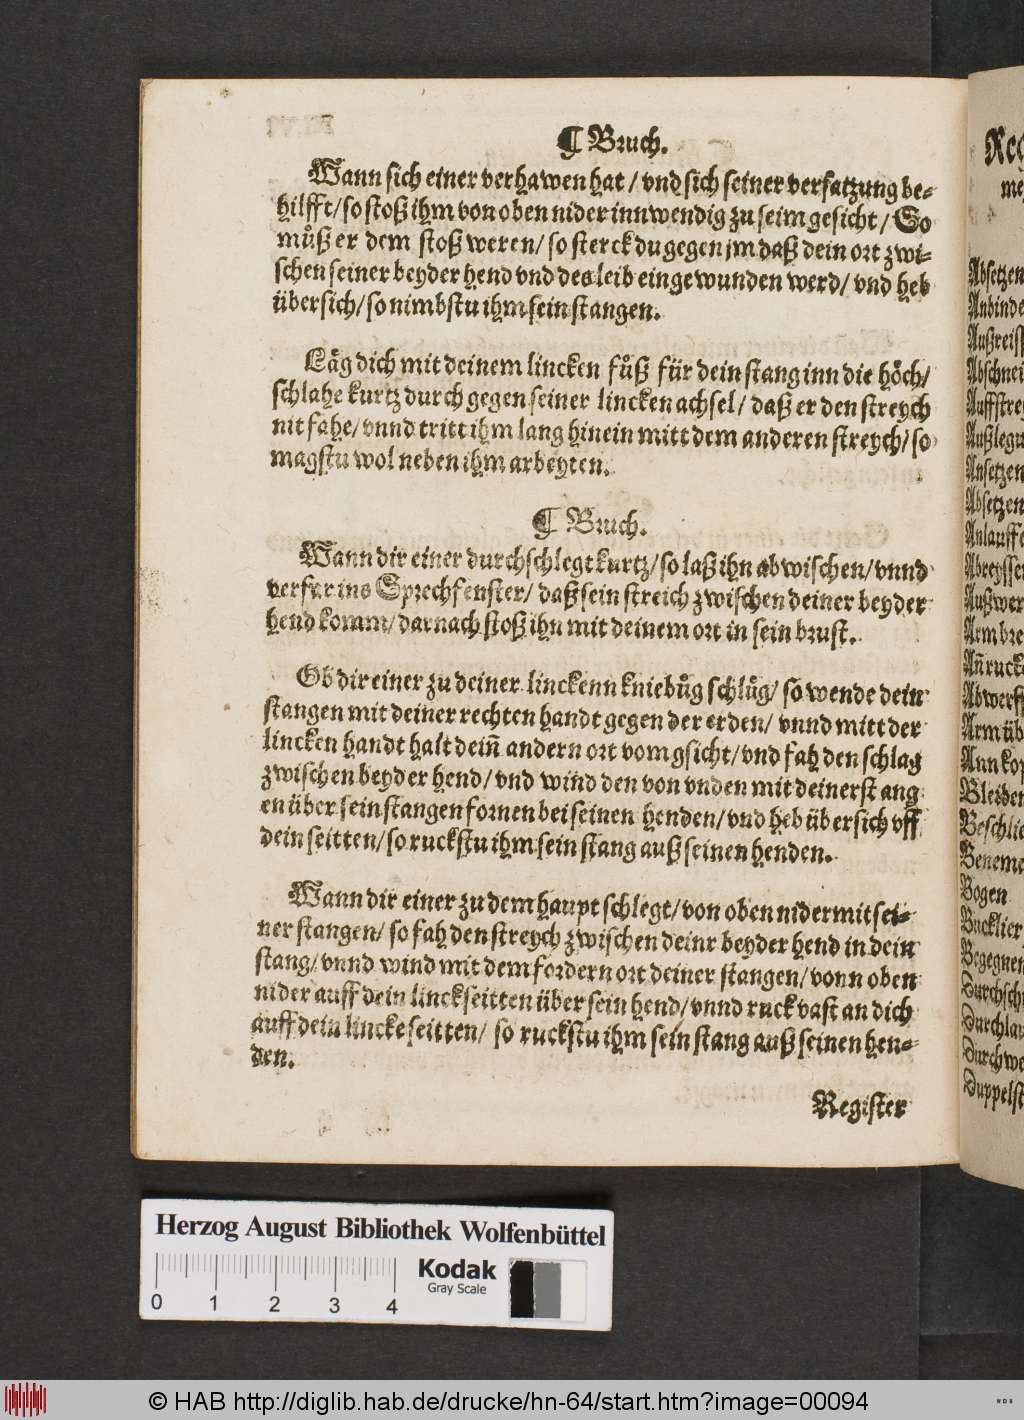 ¶ Bruch.
Wann sich einer verhawen hat / vnd sich seiner versatzung be-
hilfft/ so stoß ihm von oben nider innwendig zu seim gesicht / So
můß er dem stoß weren/ so sterck du gegen jm daß dein ort zwi-
schen seiner beyder hend vnd des leib eingewunden werd/ vnd heb
übersich/ so nimbstu ihm sein stangen.
Läg dich mit deinem lincken fůß für dein stang inn die höch/
schlahe kurtz durch gegen seiner lincken achsel/ daß er den streych
nit fahe/ vnnd tritt ihm lang hinein mitt dem anderen streych/ so
magstu wol neben ihm arbeyten.
¶ Bruch.
Wann dir einer durchschlegt kurtz/ so laß ihn abwischen/ vnnd
verfar ins Sprechfenster/ daß sein streich zwischen deiner beyder
hend komm/ darnach stoß ihn mit deinem ort in sein brust.
Ob dir einer zu deiner linckenn kniebůg schlůg/ so wende dein
stangen mit deiner rechten handt gegen der erden/ vnnd mitt der
lincken handt halt deiñ andern ort vom gsicht/ vnd fah den schlag
zwischen beyder hend/ vnd wind den von vnden mit deiner stang
en über sein stangen fornen bei seinen henden/ vnd heb übersich vff
dein seitten/ so ruckstu ihm sein stang auß seinen henden.
Wann dir einer zu dem haupt schlegt/ von oben nider mit sei-
ner stangen/ so fah den streych zwischen deinr beyder hend in dein
stang/ vnnd wind mit dem fordern ort deiner stangen/ vonn oben
nider auff dein linck seitten über sein hend/ vnnd ruck vast an dich
auff dein lincke seitten/ so ruckstu ihm sein stang auß seinen hen-
den.
Register
Reg
Absetzen
Anbinde
Außreiss
Abschnei
Auffstre
Außlegu
Ansetzen
Absetzen
Anlauffe
Abreyssen
Außwer
Arm bre
Añ ruck
Abwerff
Arm üb
Ann kop
Bleiben
Beschlie
Beneme
Bogen
Bucklier
Begegnen
Durchsch
Durchlau
Durchwe
Duppelst
Herzog August Bibliothek Wolfenbüttel
Kodak
Gray Scale
0 1 2 3 4
© HAB http://diglib.hab.de/drucke/hn-64/start.htm?image=00094